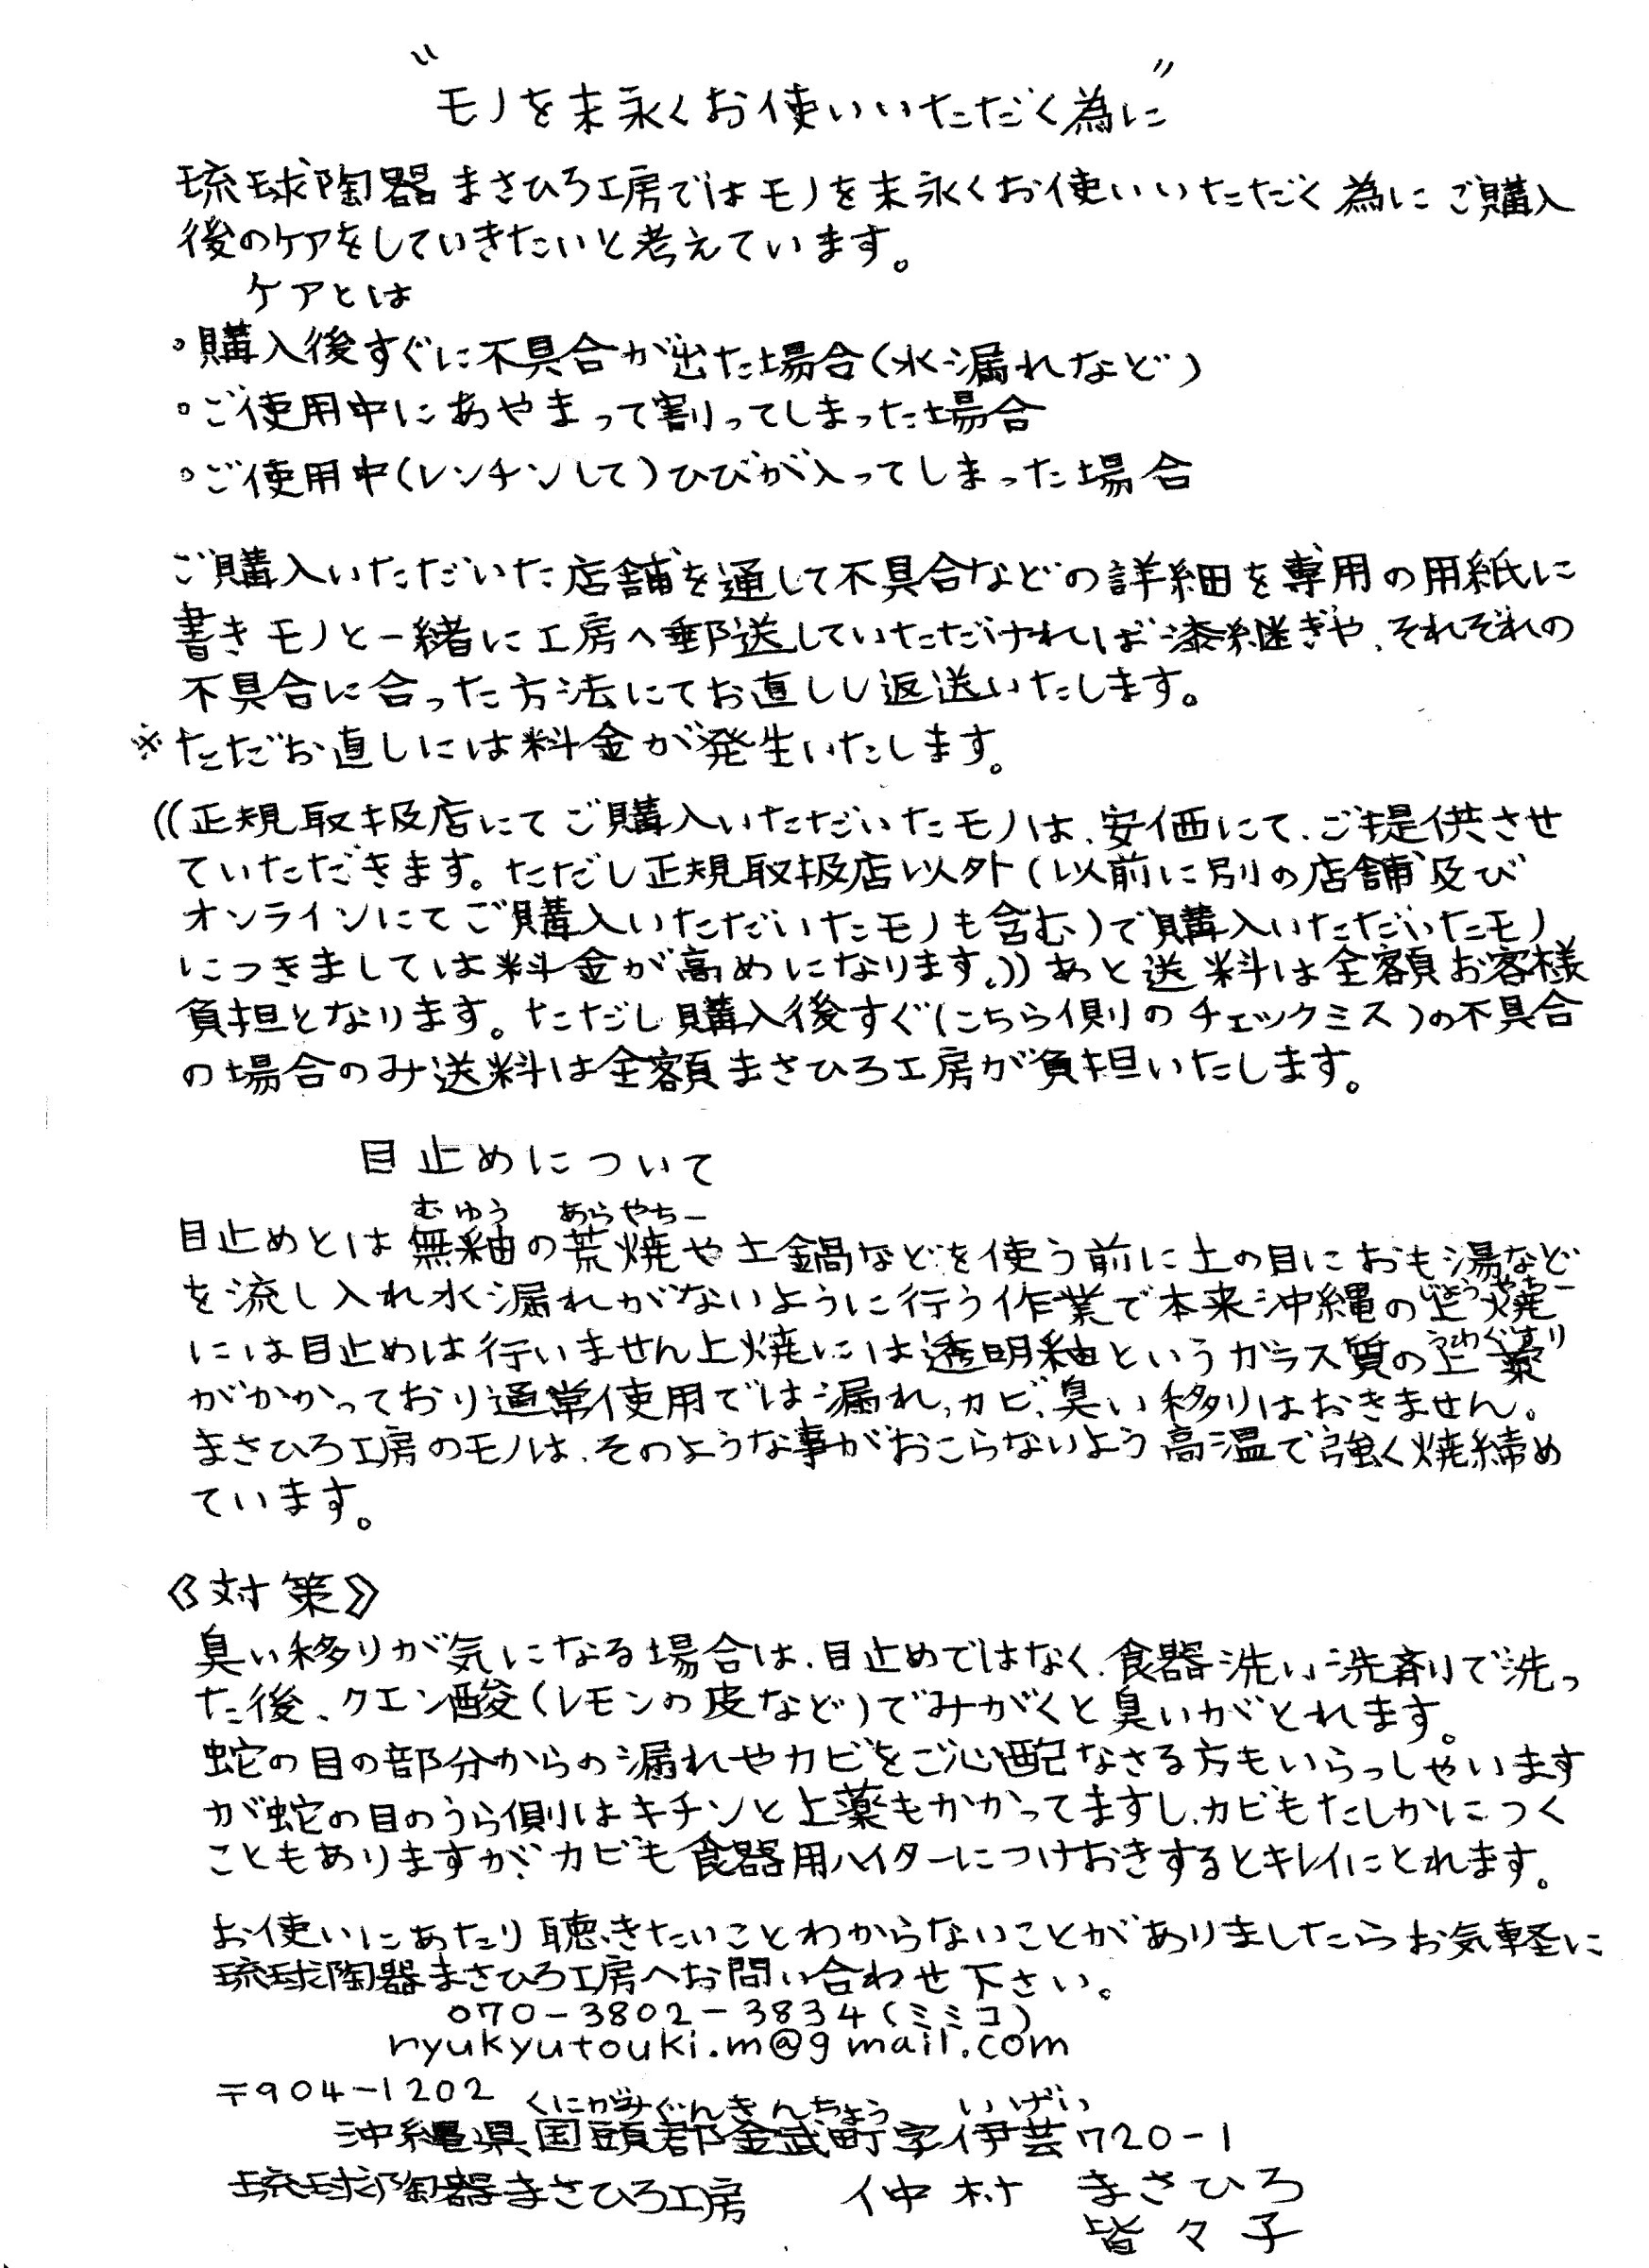 〝モノを末永くお使いいただく為に〟
琉球陶器まさひろ工房ではモノを末永くお使いいただく為にご購入
後のケアをしていきたいと考えています。
ケアとは
◦購入後すぐに不具合が出た場合(水漏れなど)
◦ご使用中にあやまって割ってしまった場合
◦ご使用中(レンチンして)ひびが入ってしまった場合
ご購入いただいた店舗を通して不具合などの詳細を専用の用紙に
書きモノと一緒に工房へ郵送していただければ漆継ぎや、それぞれの
不具合に合った方法にてお直しし返送いたします。
※ただお直しには料金が発生いたします。
((正規取扱店にてご購入いただいたモノは、安価にて、ご提供させ
ていただきます。ただし正規取扱店以外(以前に別の店舗及び
オンラインにてご購入いただいたモノも含む)で購入いただいたモノ
につきましては料金が高めになります。))あと送料は全額お客様
負担となります。ただし購入後すぐ(こちら側のチェックミス)の不具合
の場合のみ送料は全額まさひろ工房が負担いたします。
目止めについて
むゆう あらやちー
目止めとは無釉の荒焼や土鍋などを使う前に土の目におも湯など
を流し入れ水漏れがないように行う作業で本来沖縄の上焼
じょうやちー
には目止めは行いません上焼には透明釉というガラス質の上薬
うわぐすり
がかかっており通常使用では漏れ、カビ、臭い移りはおきません。
まさひろ工房のモノは、そのような事がおこらないよう高温で強く焼締め
ています。
《対策》
臭い移りが気になる場合は、目止めではなく、食器洗い洗剤で洗っ
た後、クエン酸(レモンの皮など)でみがくと臭いがとれます。
蛇の目の部分からの漏れやカビをご心配なさる方もいらっしゃいます
が蛇の目のうら側はキチンと上薬もかかってますし、カビもたしかにつく
こともありますが、カビも食器用ハイターにつけおきするとキレイにとれます。
お使いにあたり聴きたいことわからないことがありましたらお気軽に
琉球陶器まさひろ工房へお問い合わせ下さい。
070-3802-3834(ミミコ)
ryukyutouki.m@gmail.com
〒904-1202
くにがみぐんきんちょう いげい
沖縄県国頭郡金武町字伊芸720-1
琉球陶器まさひろ工房 仲村 まさひろ
皆々子